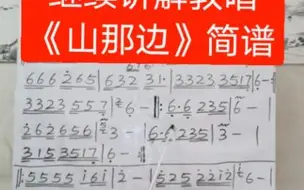 继续讲解教唱
《山那边》简谱
666 265 | 632 31· | 3323 3517 | 6-
3323 557 | 6 - ‖: 6·6 235 | 6 - |
262656 | 3 - | 6·6 235 | 3 - |
3153517 | 6 - ‖
‖: 5555 i6i | 2 - | 525 22i2 | 6 - |